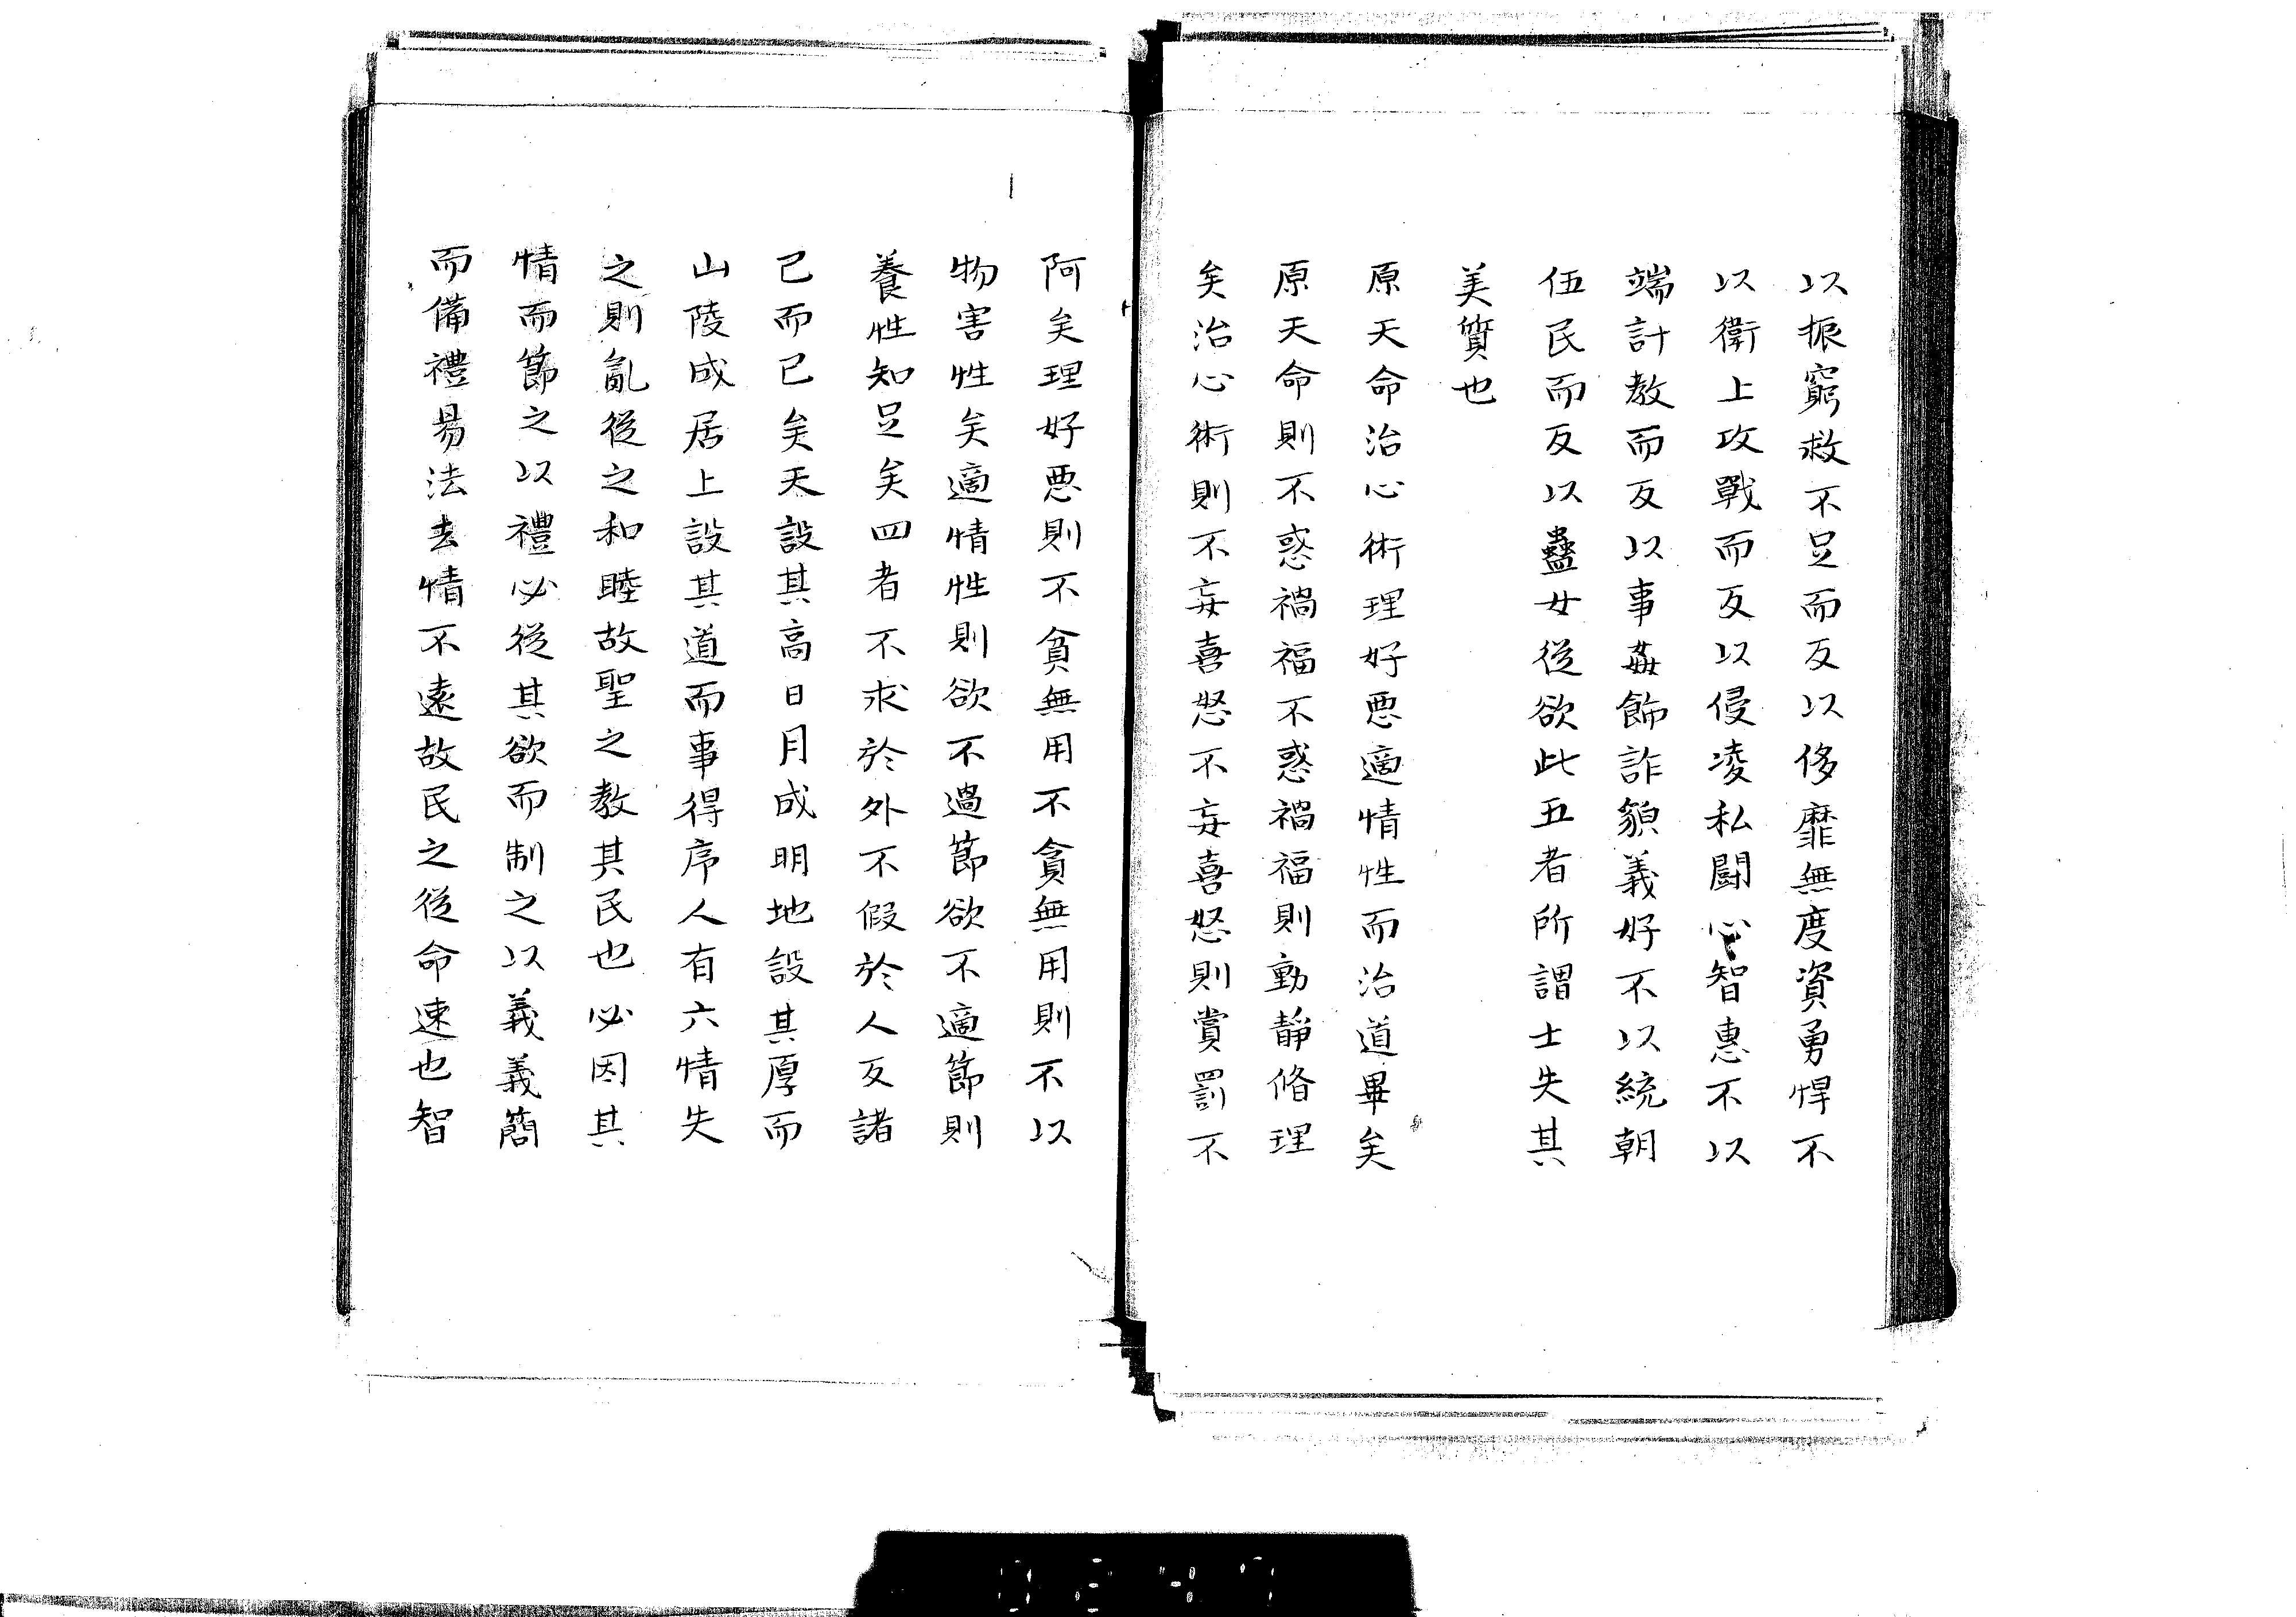 以振窮救不足而反以侈靡無度資勇悍不
以衛上攻戰而反以侵凌私闘心智惠不以
端計教而反以事姦飾詐貌義好不以統朝
伍民而反以蠱女從欲此五者所謂士失其
美質也
原天命治心術理好悪適情性而治道畢矣
原天命則不惑禍福不惑禍福則動靜脩理
矣治心術則不妄喜怒不妄喜怒則賞罰不
阿矣理好悪則不貪無用不貪無用則不以
物害性矣適情性則欲不過節欲不適節則
養性知足矣四者不求於外不假於人反諸
己而已矣天設其高日月成明地設其厚而
山陵成居上設其道而事得序人有六情失
之則亂從之和睦故聖之教其民也必因其
情而節之以禮必從其欲而制之以義義簡
而備禮易法去情不遠故民之從命速也智